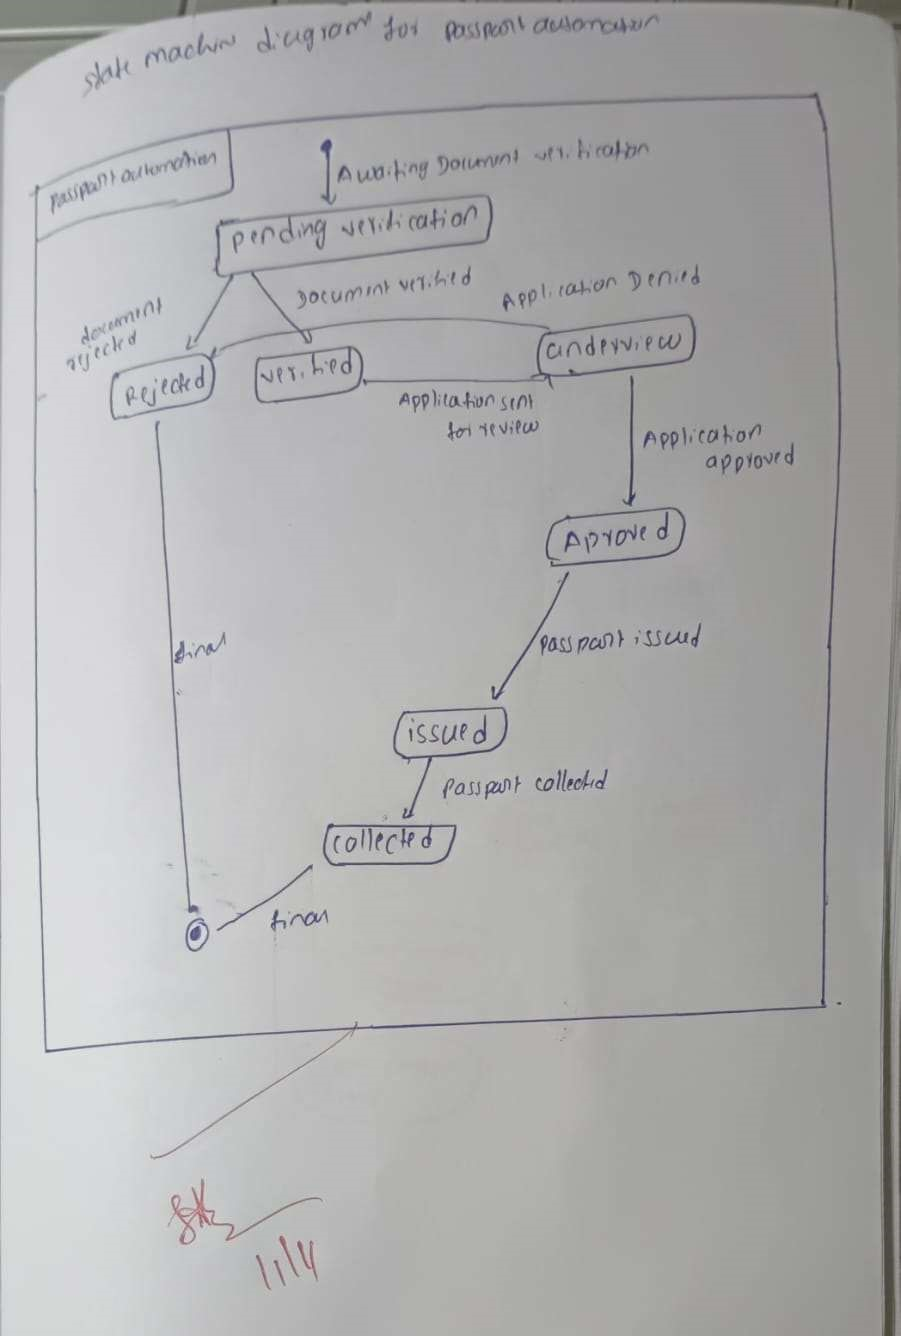 state machine diagram for Passpart automation
Passpart automation
Awaiting Document verification
Pending verification
Document verified
Application Denied
document
rejected
Rejected
verified
underview
Application sent
for review
Application
approved
Aproved
final
Passpart issued
issued
Passpart collected
collected
final
11/4